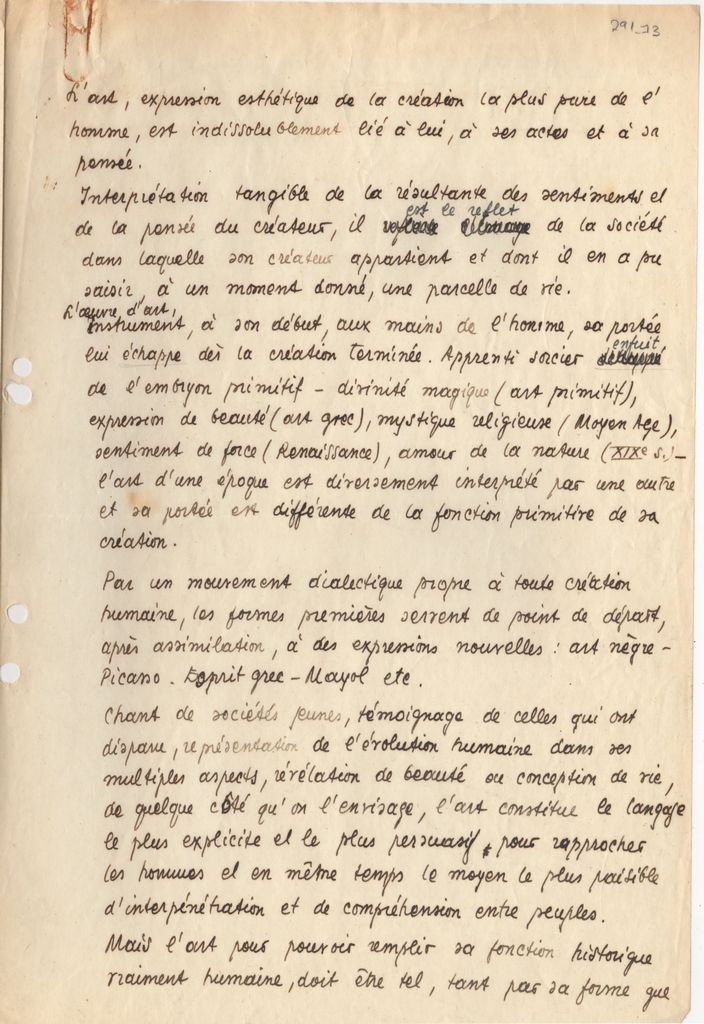 291_13
L'art, expression esthétique de la création la plus pure de l'
homme, est indissolublement lié à lui, à ses actes et à sa
pensée.
Interprétation tangible de la résultante des sentiments et
est le reflet
de la pensée du créateur, il de la société
dans laquelle son créateur appartient et dont il en a pu
saisir, à un moment donné, une parcelle de vie.
L'œuvre d'art,
Instrument, à son début, aux mains de l'homme, sa portée
enfuit
lui échappe dès la création terminée. Apprenti sorcier
de l'embryon primitif - divinité magique (art primitif),
expression de beauté (art grec), mystique religieuse (Moyen Age),
sentiment de force (Renaissance), amour de la nature (XIXe s.) -
l'art d'une époque est diversement interprété par une autre
et sa portée est différente de la fonction primitive de sa
création.
Par un mouvement dialectique propre à toute création
humaine, les formes premières servent de point de départ,
après assimilation, à des expressions nouvelles : art nègre -
Picasso. Esprit grec - Mayol etc.
Chant de sociétés jeunes, témoignage de celles qui ont
disparu, représentation de l'évolution humaine dans ses
multiples aspects, révélation de beauté ou conception de vie,
de quelque côté qu'on l'envisage, l'art constitue le langage
le plus explicite et le plus persuasif, pour rapprocher
les hommes et en même temps le moyen le plus paisible
d'interpénétration et de compréhension entre peuples.
Mais l'art pour pouvoir remplir sa fonction historique
vraiment humaine, doit être tel, tant par sa forme que